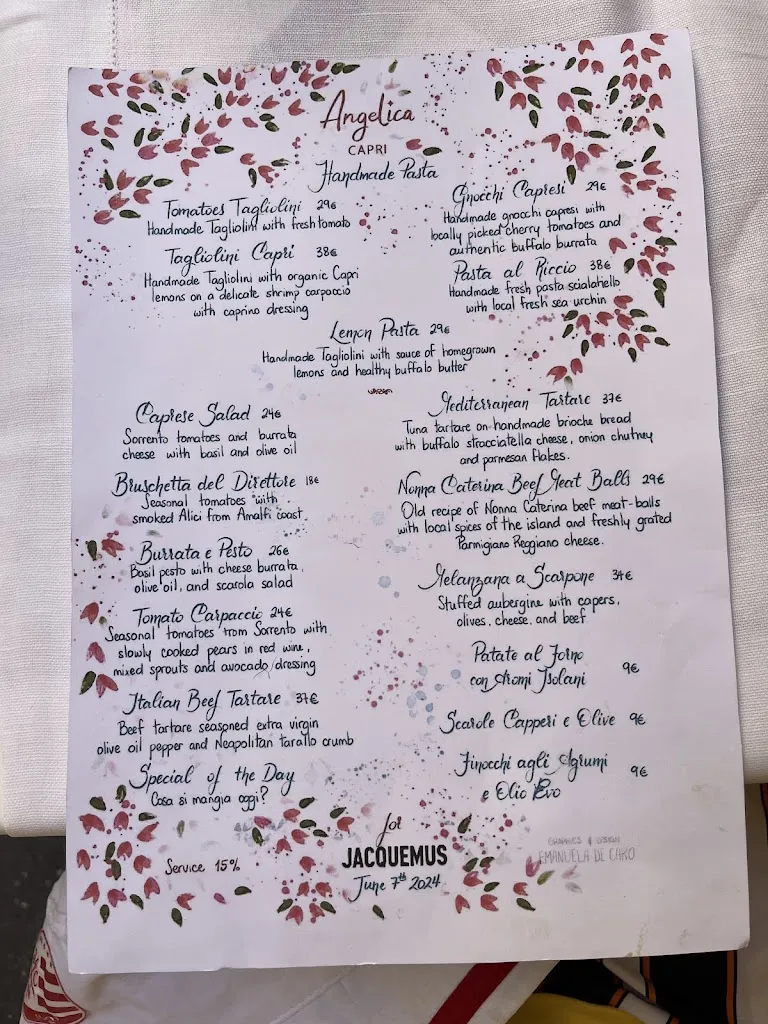 Angelica
CAPRI
Handmade Pasta
Tomatoes Tagliolini 29€
Handmade Tagliolini with fresh tomato
Tagliolini Capri 38€
Handmade Tagliolini with organic Capri
lemons on a delicate shrimp carpaccio
with caprino dressing
Gnocchi Capresi 29€
Handmade gnocchi capresi with
locally picked cherry tomatoes and
authentic buffalo burrata
Pasta al Riccio 38€
Handmade fresh pasta scialatiello
with local fresh sea urchin
Lemon Pasta 29€
Handmade Tagliolini with sauce of homegrown
lemons and healthy buffalo butter
Caprese Salad 24€
Sorrento tomatoes and burrata
cheese with basil and olive oil
Bruschetta del Direttore 18€
Seasonal tomatoes with
smoked Alici from Amalfi coast
Burrata e Pesto 26€
Basil pesto with cheese burrata,
olive oil, and scarola salad
Tomato Carpaccio 24€
Seasonal tomatoes from Sorrento with
slowly cooked pears in red wine,
mixed sprouts and avocado dressing
Italian Beef Tartare 37€
Beef tartare seasoned extra virgin
olive oil pepper and Neapolitan tarallo crumb
Special of the Day
Cosa si mangia oggi?
Mediterranean Tartare 37€
Tuna tartare on handmade brioche bread
with buffalo stracciatella cheese, onion chutney
and parmesan flakes.
Nonna Caterina Beef Meat Balls 29€
Old recipe of Nonna Caterina beef meat-balls
with local spices of the island and freshly grated
Parmigiano Reggiano cheese.
Melanzana a Scarpone 34€
Stuffed aubergine with capers,
olives, cheese, and beef
Patate al Forno
con Aromi Isolani 9€
Scarole Capperi e Olive 9€
Finocchi agli Agrumi
e Olio Evo 9€
Service 15%
for
JACQUEMUS
June 7th 2024
GRAPHICS & DESIGN
EMANUELA DE CARO